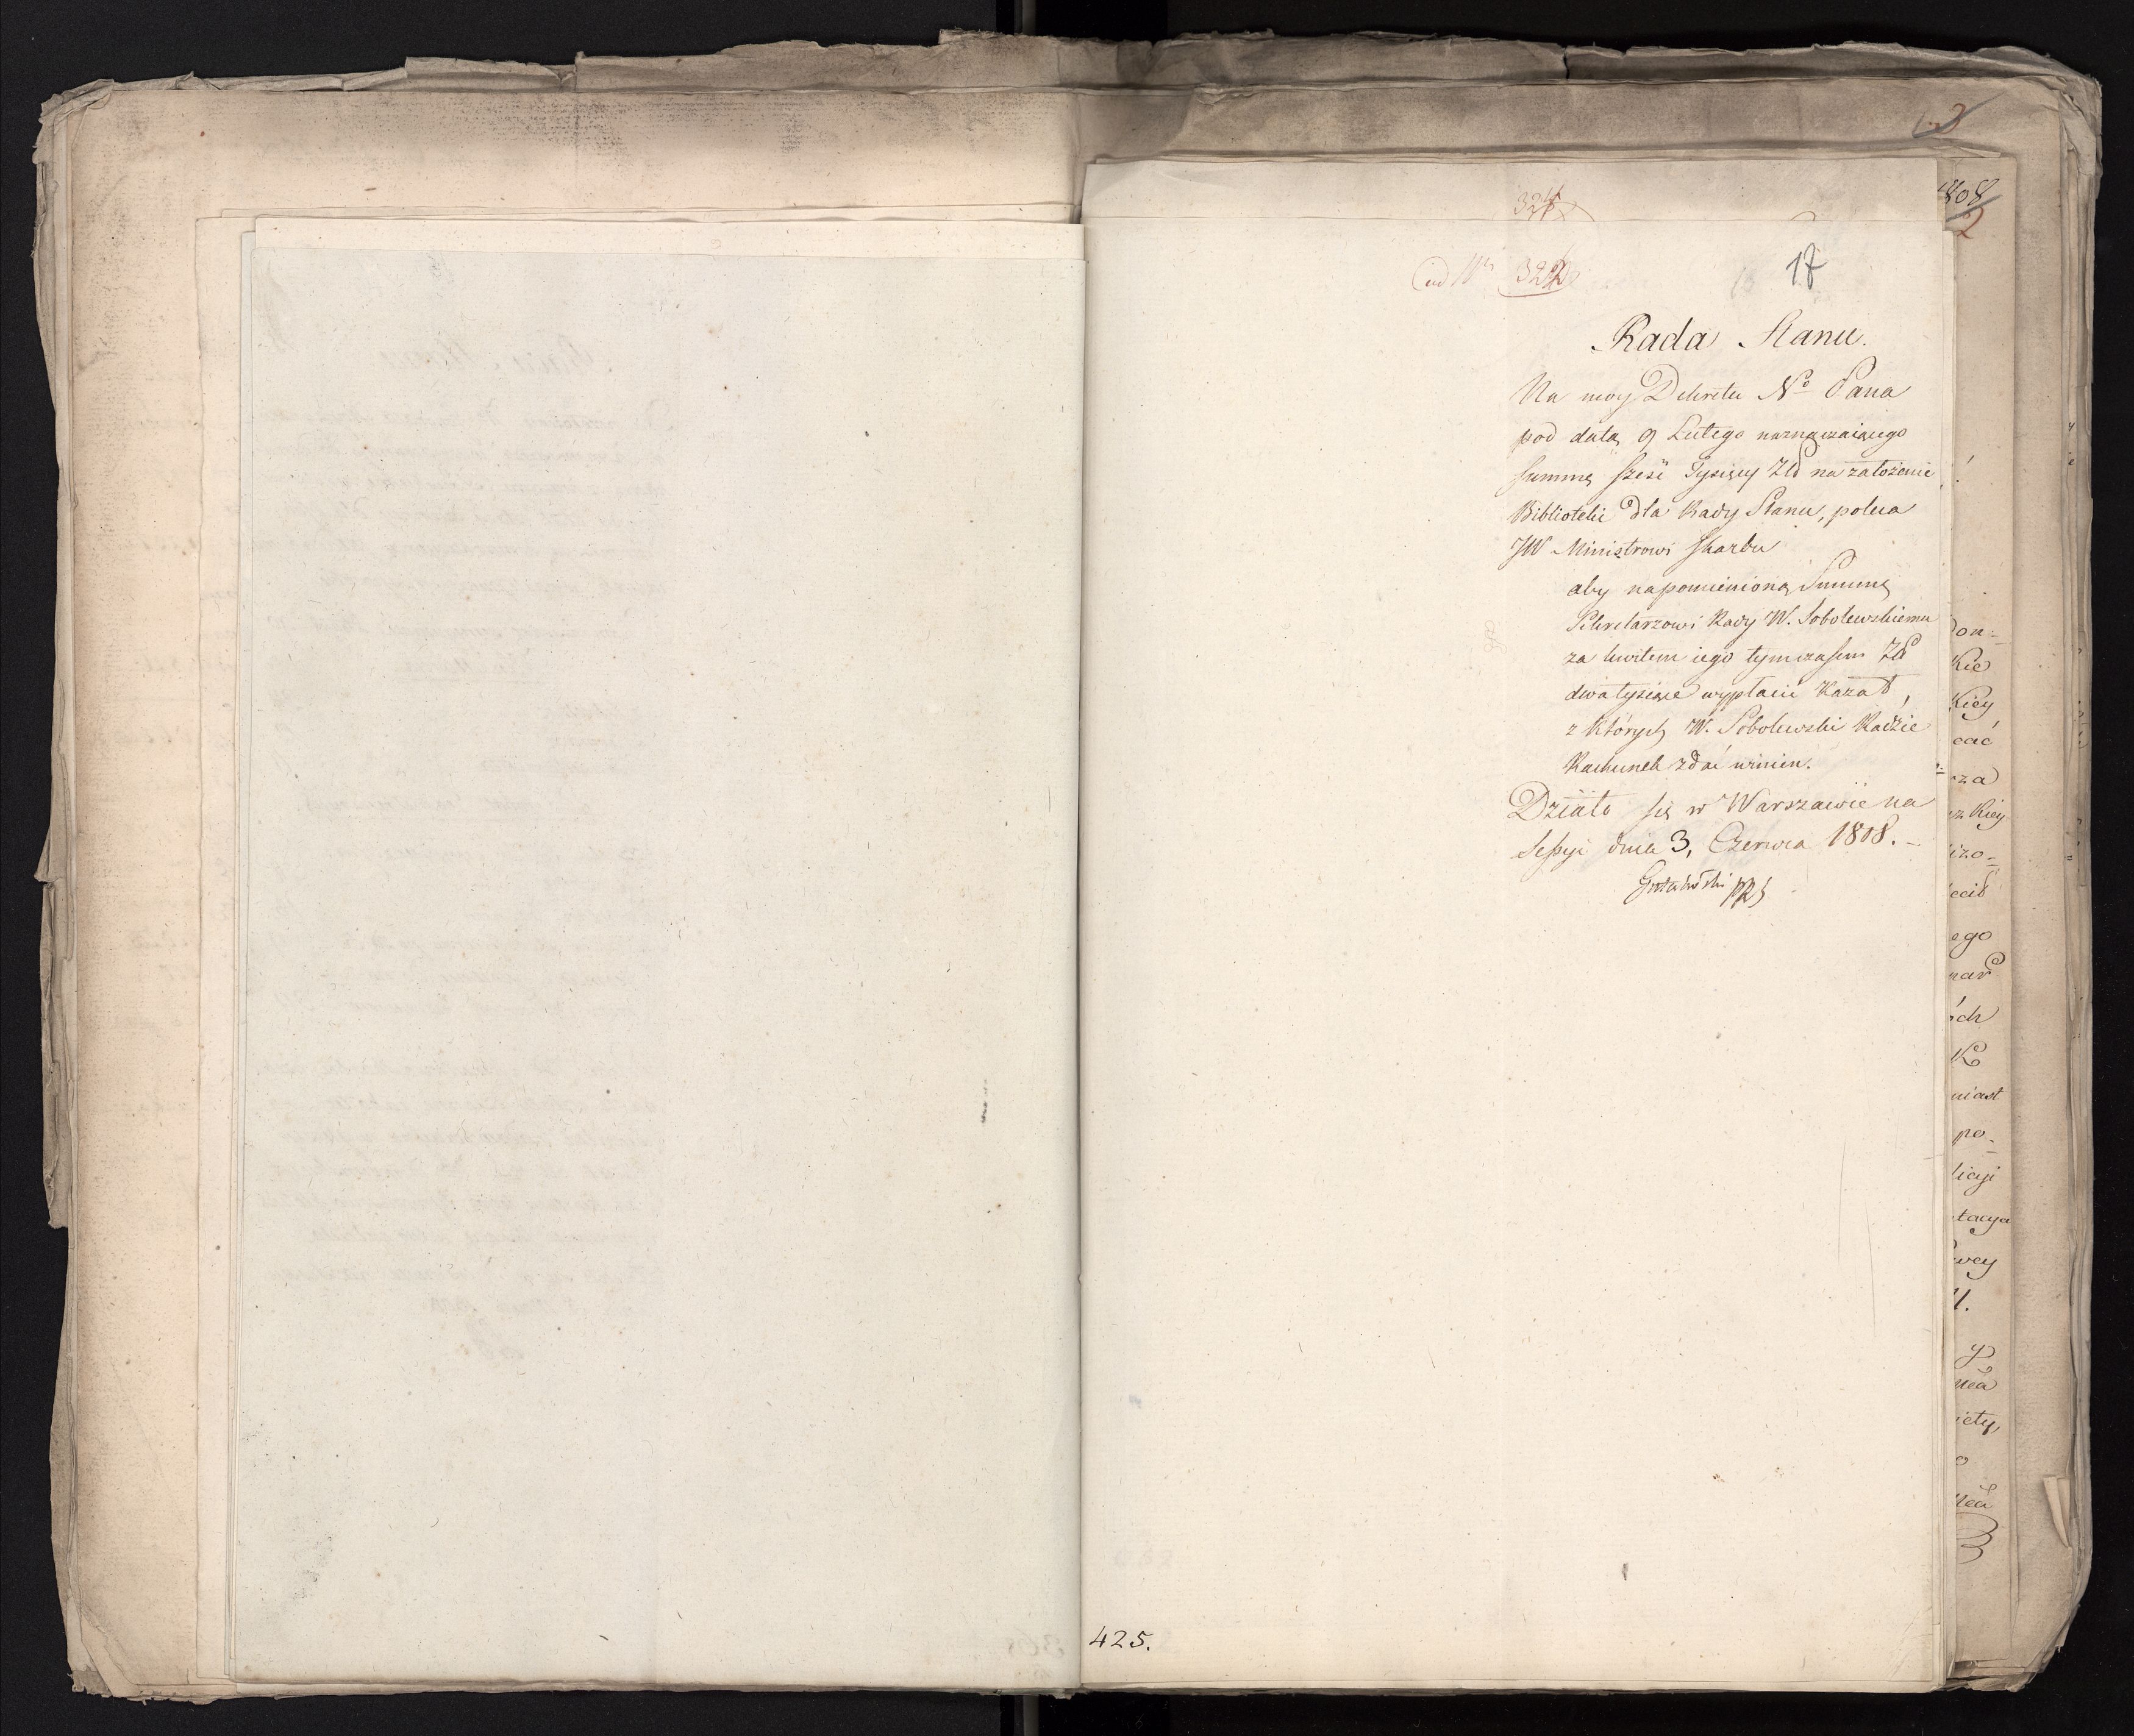 324
ad Nr 322
17
Rada Stanu.
Na mocy Dekretu No Pana
pod datą 9 Lutego naznaczaiącego
summę sześć Tysięcy Złł na założenie
Biblioteki dla Rady Stanu, poleca
JW Ministrowi Skarbu
aby napomienioną Summę
Sekretarzowi Rady W. Sobolewskiemu
za kwitem iego tymczasem Złł
dwatysiące wypłacić kazał,
z których W. Sobolewski Radzie
Rachunek zdać winien.
Działo się w Warszawie na
Sessyi dnia 3, Czerwca 1808. –
Gutakowski
425.
1808
2
Kie
Kiey
cać
rza
ego
ch
miast
po-
tacya